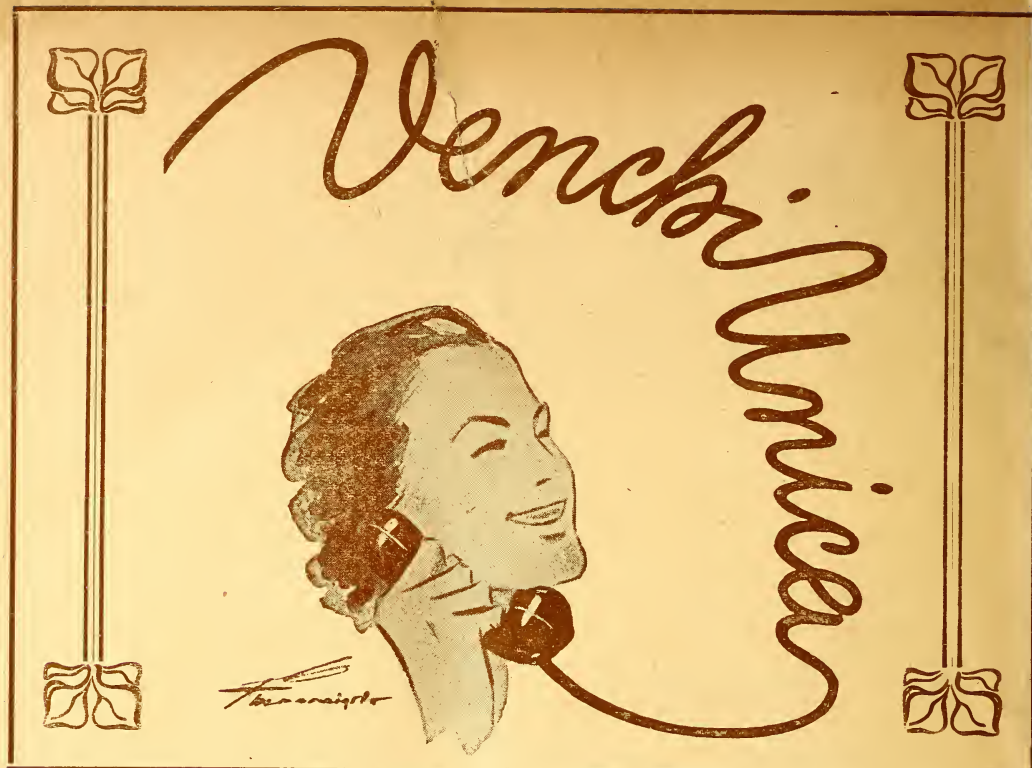 Venchi Unica